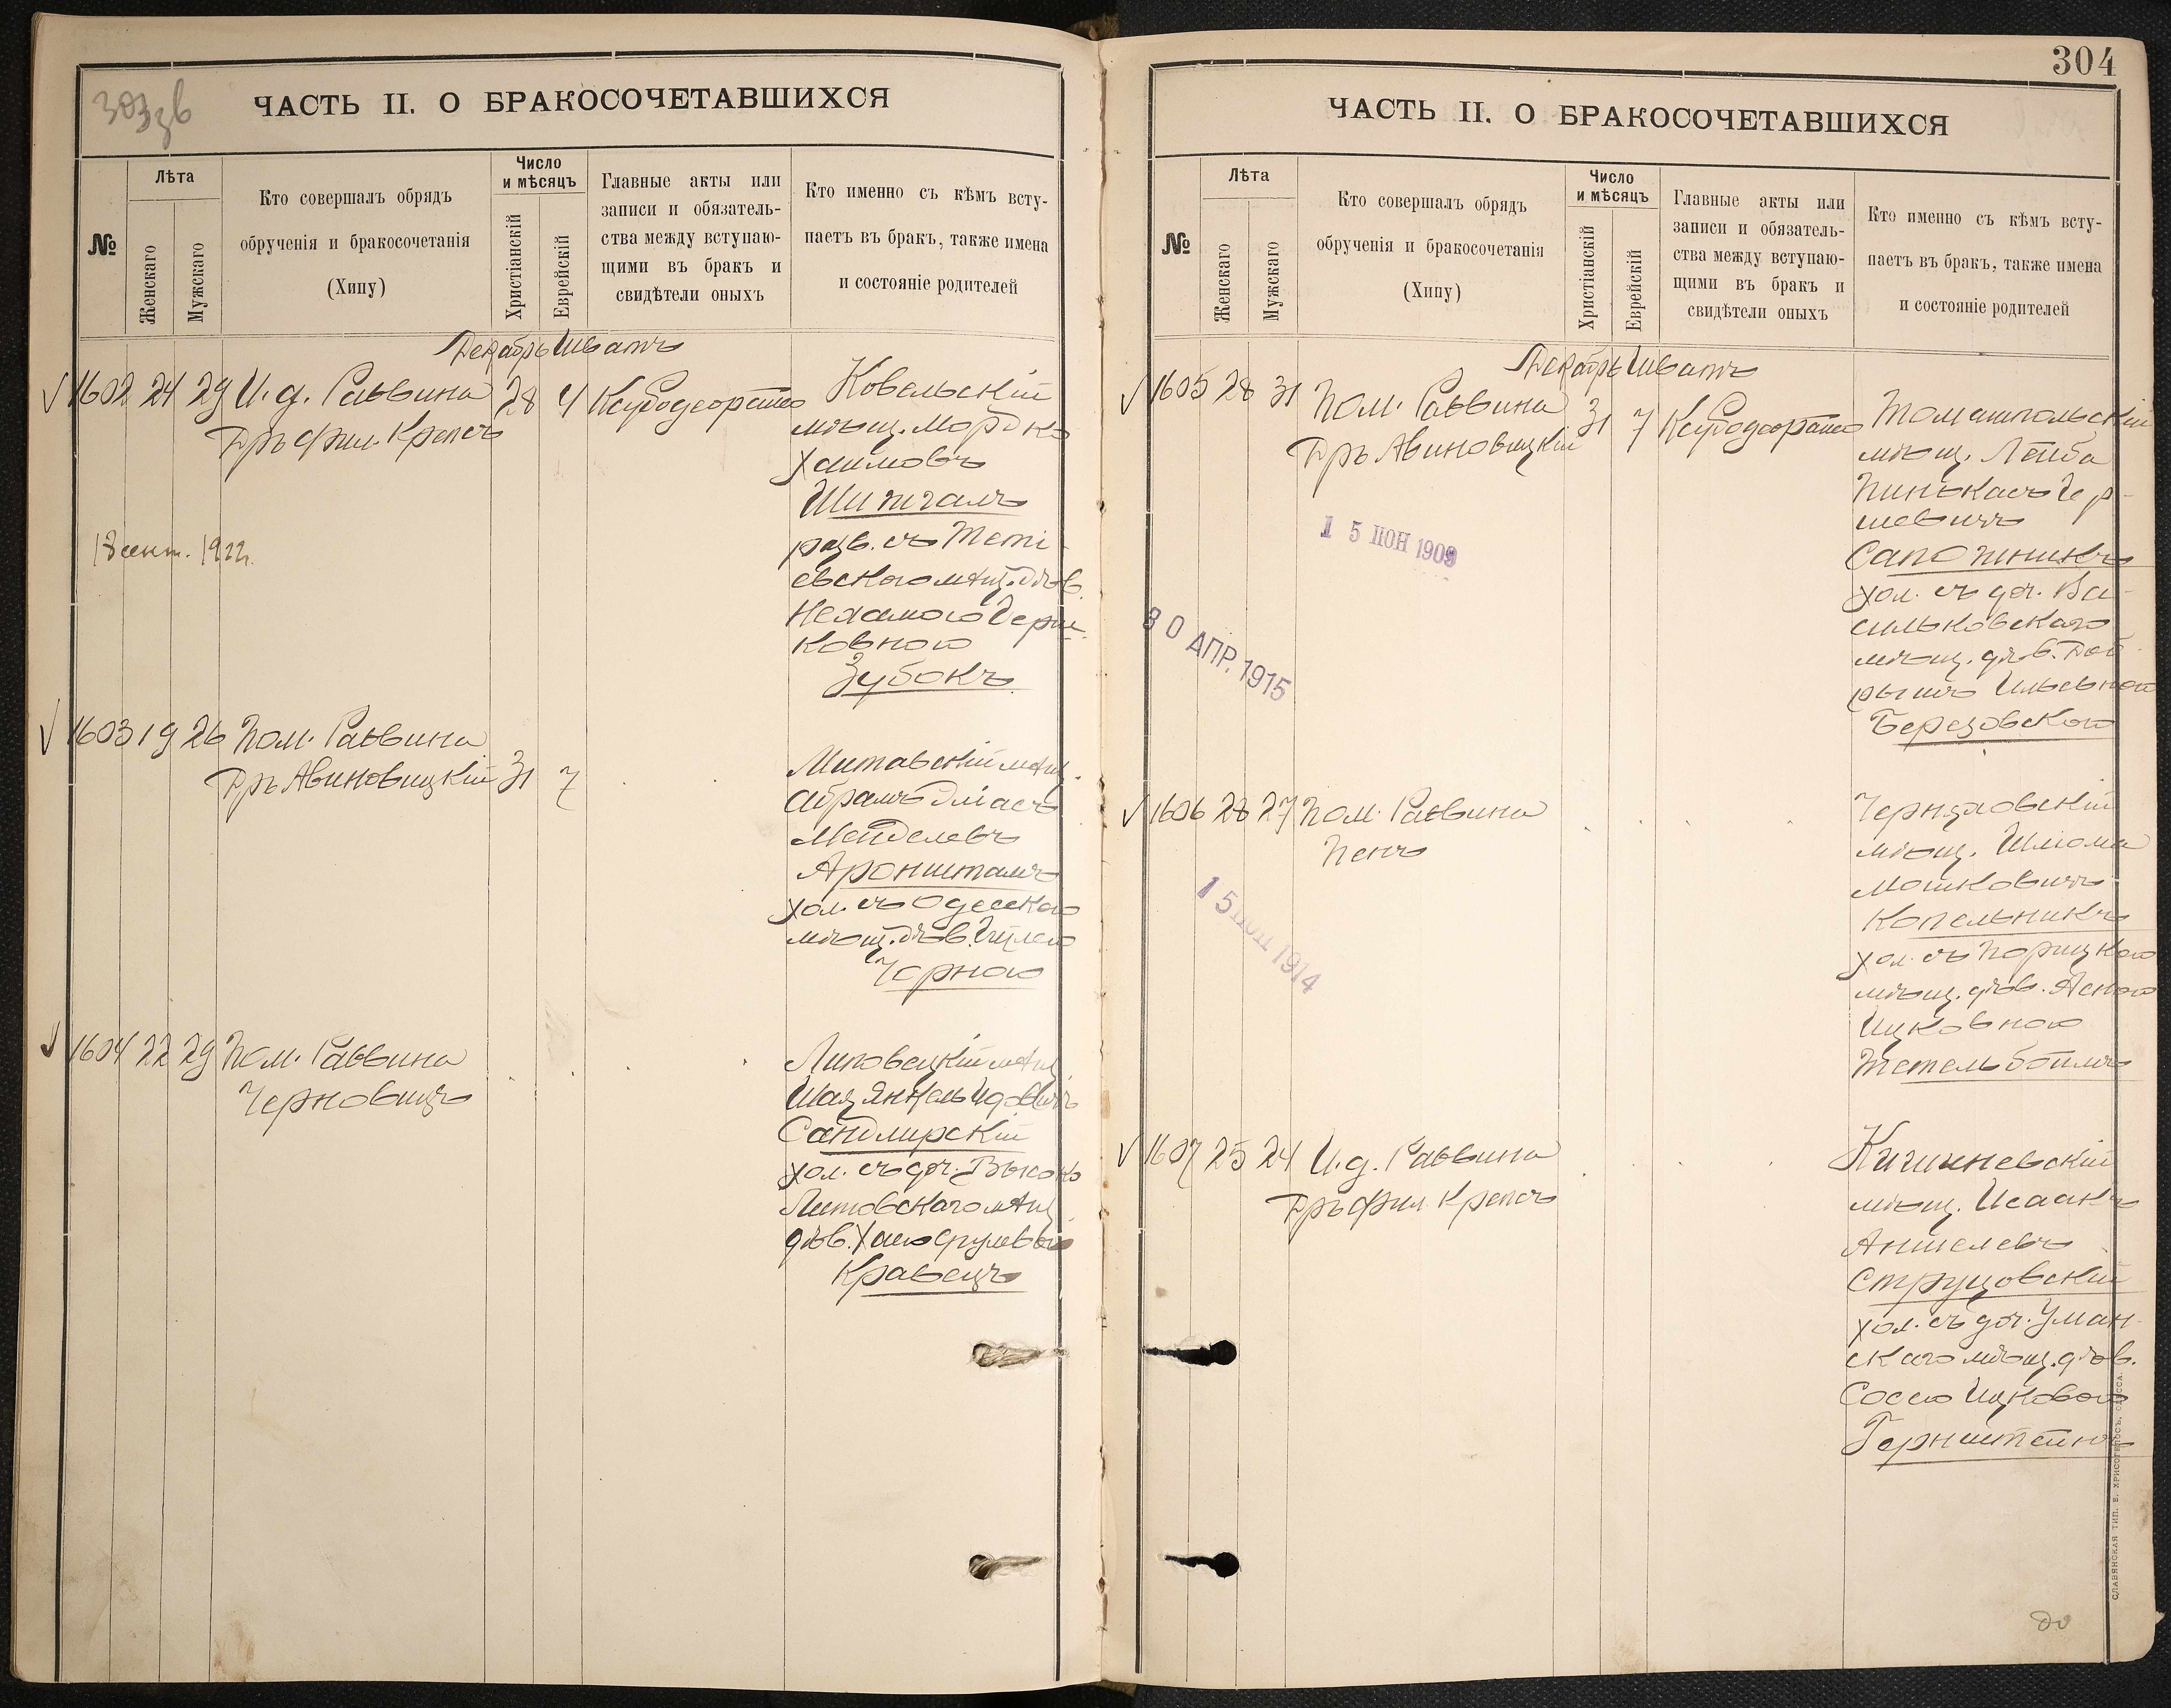 303зв
ЧАСТЬ II. О БРАКОСОЧЕТАВШИХСЯ
№
Лѣта
Женскаго
Мужскаго
Кто совершалъ обрядъ
обрученія и бракосочетанія
(Хипу)
Число
и мѣсяцъ
Христіанскій
Еврейскій
Главные акты или
записи и обязатель-
ства между вступаю-
щими въ бракъ и
свидѣтели оныхъ
Кто именно съ кѣмъ всту-
паетъ въ бракъ, также имена
и состояніе родителей
Декабрь Шватъ
1602 24 29 И. д. Раввина 28 4
Дръ фил. Крепсъ
18 сент. 1922г.
Ковельскій
мѣщ. Мордко
Хаимовъ
Шипгалъ
разв. съ Теті-
евскою мѣщ. дѣв.
Нехамою Герш-
ковною
Зубокъ
1603 19 26 Пом. Раввина
Дръ Авиновицкій 31 7
Митавскій мѣщ.
Абрамъ Эліасъ
Менделевъ
Аронштамъ
хол. съ Одесскою
мѣщ. дѣв.
Чорною
1604 22 29 Пом. Раввина
Черновицъ
Липовецкій мѣщ.
Сандлирскій
хол. съ доч. Высоко
Литовскаго мѣщ.
дѣв. Хаею Срулевою
Кравецъ
304
ЧАСТЬ II. О БРАКОСОЧЕТАВШИХСЯ
№
Лѣта
Женскаго
Мужскаго
Кто совершалъ обрядъ
обрученія и бракосочетанія
(Хипу)
Число
и мѣсяцъ
Христіанскій
Еврейскій
Главные акты или
записи и обязатель-
ства между вступаю-
щими въ бракъ и
свидѣтели оныхъ
Кто именно съ кѣмъ всту-
паетъ въ бракъ, также имена
и состояніе родителей
Декабрь Шватъ
1605 28 31 Пом. Раввина 31 7
Дръ Авиновицкій
15 ІЮН 1909
30 АПР. 1915
Томашпольскій
мѣщ. Лейба
Пинькасъ Гер-
шевичъ
Сапожникъ
хол. съ доч. Ва-
сильковскаго
мѣщ. дѣв. Доб-
рышъ Ильевною
Березовскою
1606 28 27 Пом. Раввина
Пенъ
15 ІЮН 1914
мѣщ. Шлома
Мошковичъ
Копельникъ
хол. съ Порицкою
мѣщ. дѣв. Асною
Ицковною
Тетельбоймъ
1607 25 24 И. д. Раввина
Дръ фил. Крепсъ
Кишиневскій
мѣщ. Исаакъ
Аншелевъ
Струцовскій
хол. съ доч. Уман-
скаго мѣщ. дѣв.
Соссею Ицковою
Гернштейнъ
СЛАВЯНСКАЯ ТИП. Е. ХРИСОГЕЛОСЪ, ОДЕССА.